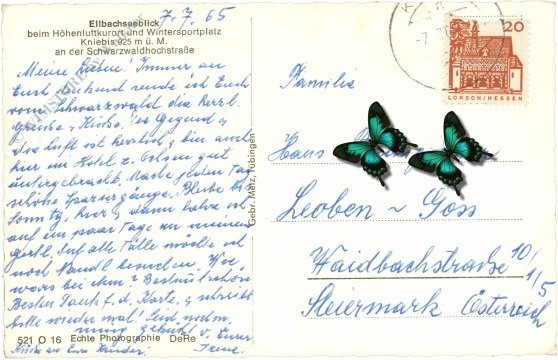 7.7.65
Ellbachseeblick
beim Höhenluftkurort und Wintersportplatz
Kniebis 925 m ü. M.
an der Schwarzwaldhochstraße
Meine Lieben! Immer an
Euch denkend sende ich Euch
vom Schwarzwald die herzl.
Grüße, Küsse. Die Gegend u.
die Luft ist herrlich, bin auch
hier im Hotel z. Ochsen gut
untergebracht. Mache jeden Tag
schöne Spaziergänge. Bleibe bis
Sonntg. hier, dann fahre ich
auf ein paar Tage zu meinem
Auf alle Fälle möchte ich
noch besuchen. Wie
war es bei
Besten Dank f. d. Karte, schreibt
bitte wieder mal! Seid
Eurer
521 O 16 Echte Photographie DeRe
Küsse an Eure Kinder! Irene.
Gebr. Metz, Tübingen
20
DEUTSCHE BUNDESPOST
LORSCH/HESSEN
Familie
Hans
Leoben - Göss
Waidbachstrasse 10/1/5
Steiermark Österreich